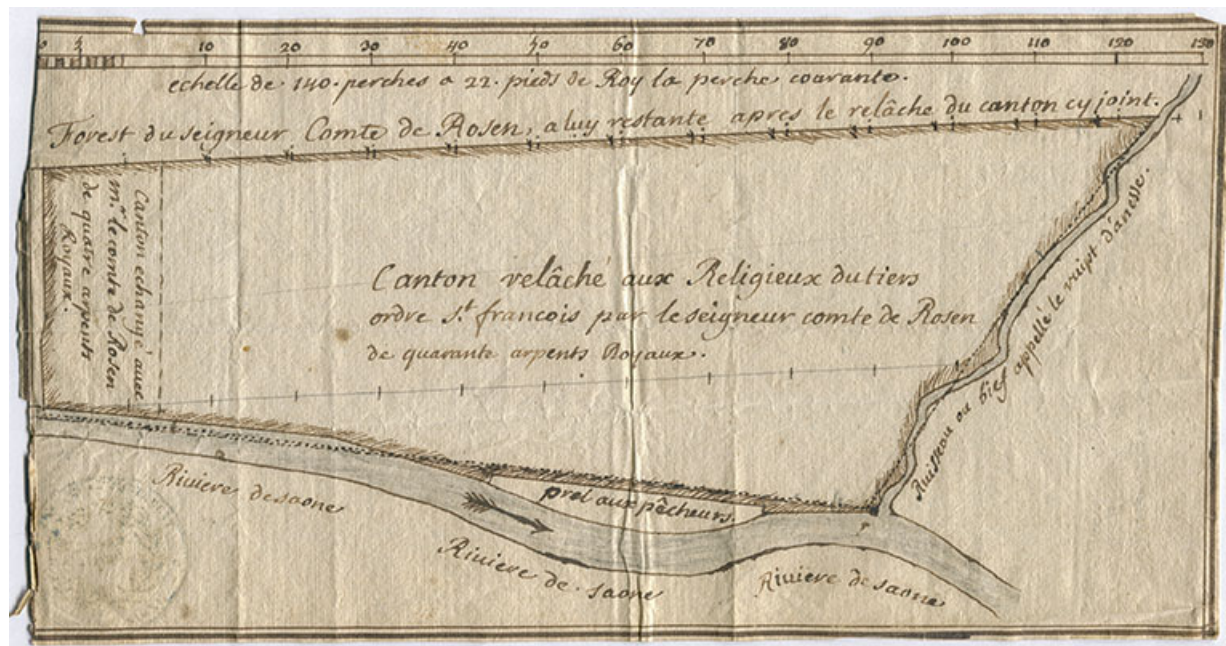 0 5 10 20 30 40 50 60 70 80 90 100 110 120 130
echelle de 140. perches a 22. pieds de Roy la perche courante.
Forest du seigneur Comte de Rosen, a luy restante apres le relâche du canton cy joint.
Canton echangé avec
mr. le comte de Rosen
de quatre arpents
Royaux.
Canton relâché aux Religieux du tiers
ordre st. francois par le seigneur comte de Rosen
de quarante arpents Royaux.
Ruissou ou bief appellé le rupt d'anesse.
prel aux pêcheurs.
Riviere de saone
Riviere de saone
Riviere de saone